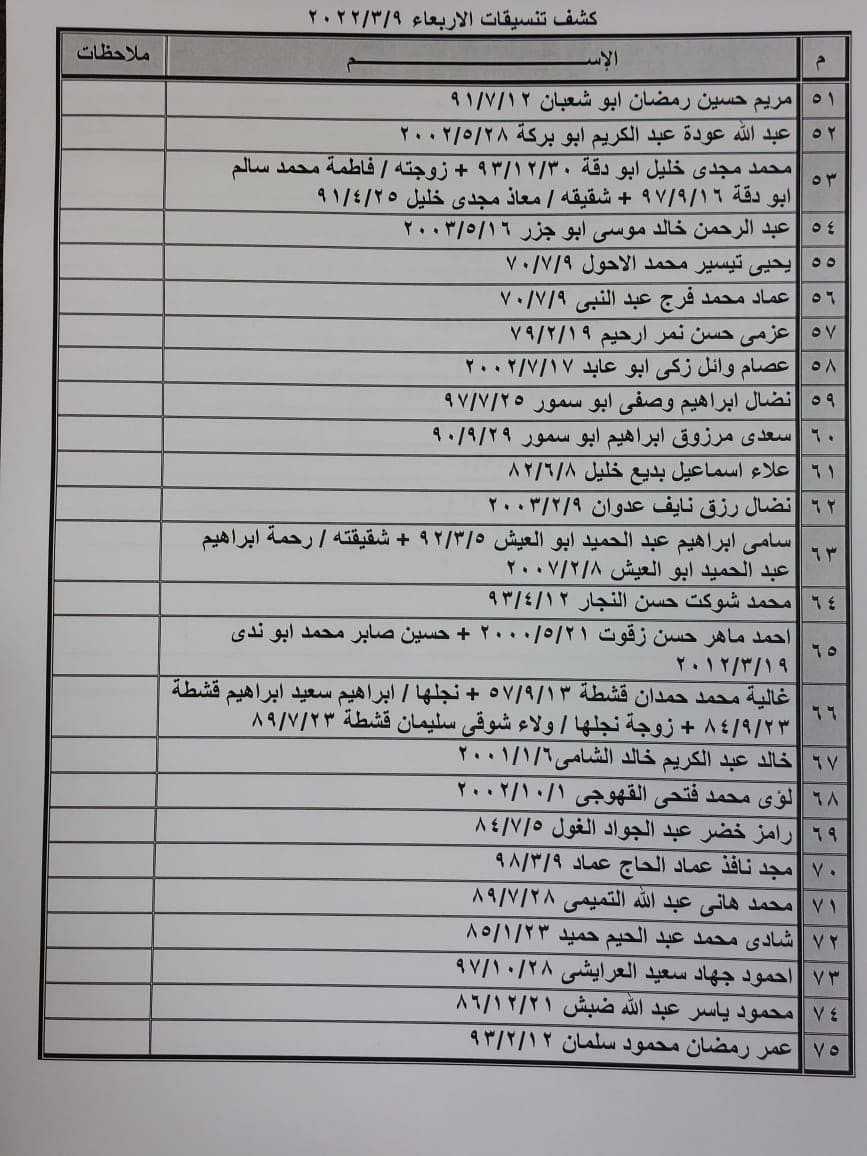 كشف تنسيقات الاربعاء ٢٠٢٢/٣/٩
م الإســـــــــــــــــــــم ملاحظات
٥١ مريم حسين رمضان ابو شعبان ٩١/٧/١٢
٥٢ عبد الله عودة عبد الكريم ابو بركة ٢٠٠٢/٥/٢٨
٥٣ محمد مجدى خليل ابو دقة ٩٣/١٢/٣٠ + زوجته / فاطمة محمد سالم
ابو دقة ٩٧/٩/١٦ + شقيقه / معاذ مجدى خليل ٩١/٤/٢٥
٥٤ عبد الرحمن خالد موسى ابو جزر ٢٠٠٣/٥/١٦
٥٥ يحيى تيسير محمد الاحول ٧٠/٧/٩
٥٦ عماد محمد فرج عبد النبى ٧٠/٧/٩
٥٧ عزمى حسن نمر ارحيم ٧٩/٢/١٩
٥٨ عصام وائل زكى ابو عابد ٢٠٠٢/٧/١٧
٥٩ نضال ابراهيم وصفى ابو سمور ٩٧/٧/٢٥
٦٠ سعدى مرزوق ابراهيم ابو سمور ٩٠/٩/٢٩
٦١ علاء اسماعيل بديع خليل ٨٢/٦/٨
٦٢ نضال رزق نايف عدوان ٢٠٠٣/٢/٩
٦٣ سامى ابراهيم عبد الحميد ابو العيش ٩٢/٣/٥ + شقيقته / رحمة ابراهيم
عبد الحميد ابو العيش ٢٠٠٧/٢/٨
٦٤ محمد شوكت حسن النجار ٩٣/٤/١٢
٦٥ احمد ماهر حسن زقوت ٢٠٠٠/٥/٢١ + حسين صابر محمد ابو ندى
٢٠١٢/٣/١٩
٦٦ غالية محمد حمدان قشطة ٥٧/٩/١٣ + نجلها / ابراهيم سعيد ابراهيم قشطة
٨٤/٩/٢٣ + زوجة نجلها / ولاء شوقى سليمان قشطة ٨٩/٧/٢٣
٦٧ خالد عبد الكريم خالد الشامى ٢٠٠١/١/٦
٦٨ لؤى محمد فتحى القهوجى ٢٠٠٢/١٠/١
٦٩ رامز خضر عبد الجواد الغول ٨٤/٧/٥
٧٠ مجد نافذ عماد الحاج عماد ٩٨/٣/٩
٧١ محمد هانى عبد الله التميمى ٨٩/٧/٢٨
٧٢ شادى محمد عبد الحيم حميد ٨٥/١/٢٣
٧٣ احمود جهاد سعيد العرايشى ٩٧/١٠/٢٨
٧٤ محمود ياسر عبد الله ضبش ٨٦/١٢/٢١
٧٥ عمر رمضان محمود سلمان ٩٣/٢/١٢